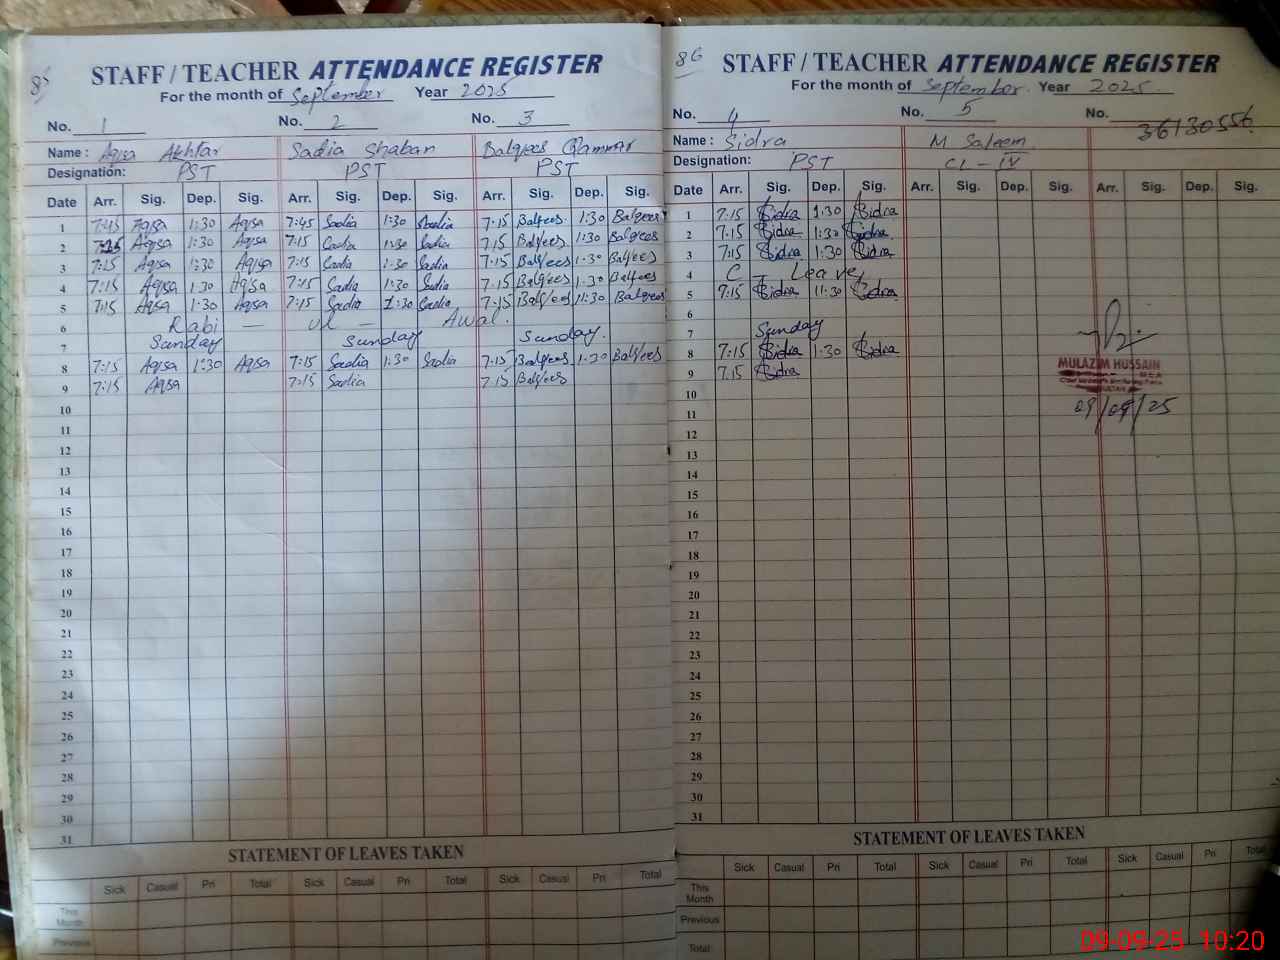 85
STAFF / TEACHER ATTENDANCE REGISTER
For the month of September Year 2025
No. 1 No. 2 No. 3
Name : Aqsa Akhtar Sadia Shaban Balqees Qammar
Designation: PST PST PST
Date Arr. Sig. Dep. Sig. Arr. Sig. Dep. Sig. Arr. Sig. Dep. Sig.
1 7:45 Aqsa 1:30 Aqsa 7:45 Sadia 1:30 Sadia 7:15 Balqees 1:30 Balqees
2 Aqsa 1:30 Aqsa 7:15 Sadia 1:30 Sadia 7:15 Balqees 1:30 Balqees
3 7:15 Aqsa 1:30 Aqsa 7:15 Sadia 1:30 Sadia 7:15 Balqees 1:30 Balqees
4 7:15 Aqsa 1:30 Aqsa 7:15 Sadia 1:30 Sadia 7:15 Balqees 1:30 Balqees
5 7:15 Aqsa 1:30 Aqsa 7:15 Sadia 1:30 Sadia 7:15 Balqees 11:30 Balqees
6 Rabi – ul – Awal.
7 Sunday Sunday Sunday.
8 7:15 Aqsa 1:30 Aqsa 7:15 Sadia 1:30 Sadia 7:15 Balqees 1:30 Balqees
9 7:15 Aqsa 7:15 Sadia 7:15 Balqees
10
11
12
13
14
15
16
17
18
19
20
21
22
23
24
25
26
27
28
29
30
31
STATEMENT OF LEAVES TAKEN
Sick Casual Pri Total Sick Casual Pri Total Sick Casual Pri Total
This Month
Previous
86
STAFF / TEACHER ATTENDANCE REGISTER
For the month of September. Year 2025.
No. 4 No. 5 No.
36130556
Name : Sidra M Saleem
Designation: PST CL – IV
Date Arr. Sig. Dep. Sig. Arr. Sig. Dep. Sig. Arr. Sig. Dep. Sig.
1 7:15 Sidra 1:30 Sidra
2 7:15 Sidra 1:30 Sidra
3 7:15 Sidra 1:30 Sidra
4 C – Leave
5 7:15 Sidra 11:30 Sidra
6
7 Sunday
8 7:15 Sidra 1:30 Sidra
9 7:15 Sidra
MULAZIM HUSSAIN
09/09/25
10
11
12
13
14
15
16
17
18
19
20
21
22
23
24
25
26
27
28
29
30
31
STATEMENT OF LEAVES TAKEN
Sick Casual Pri Total Sick Casual Pri Total Sick Casual Pri Total
This Month
Previous
Total
09-09-25 10:20